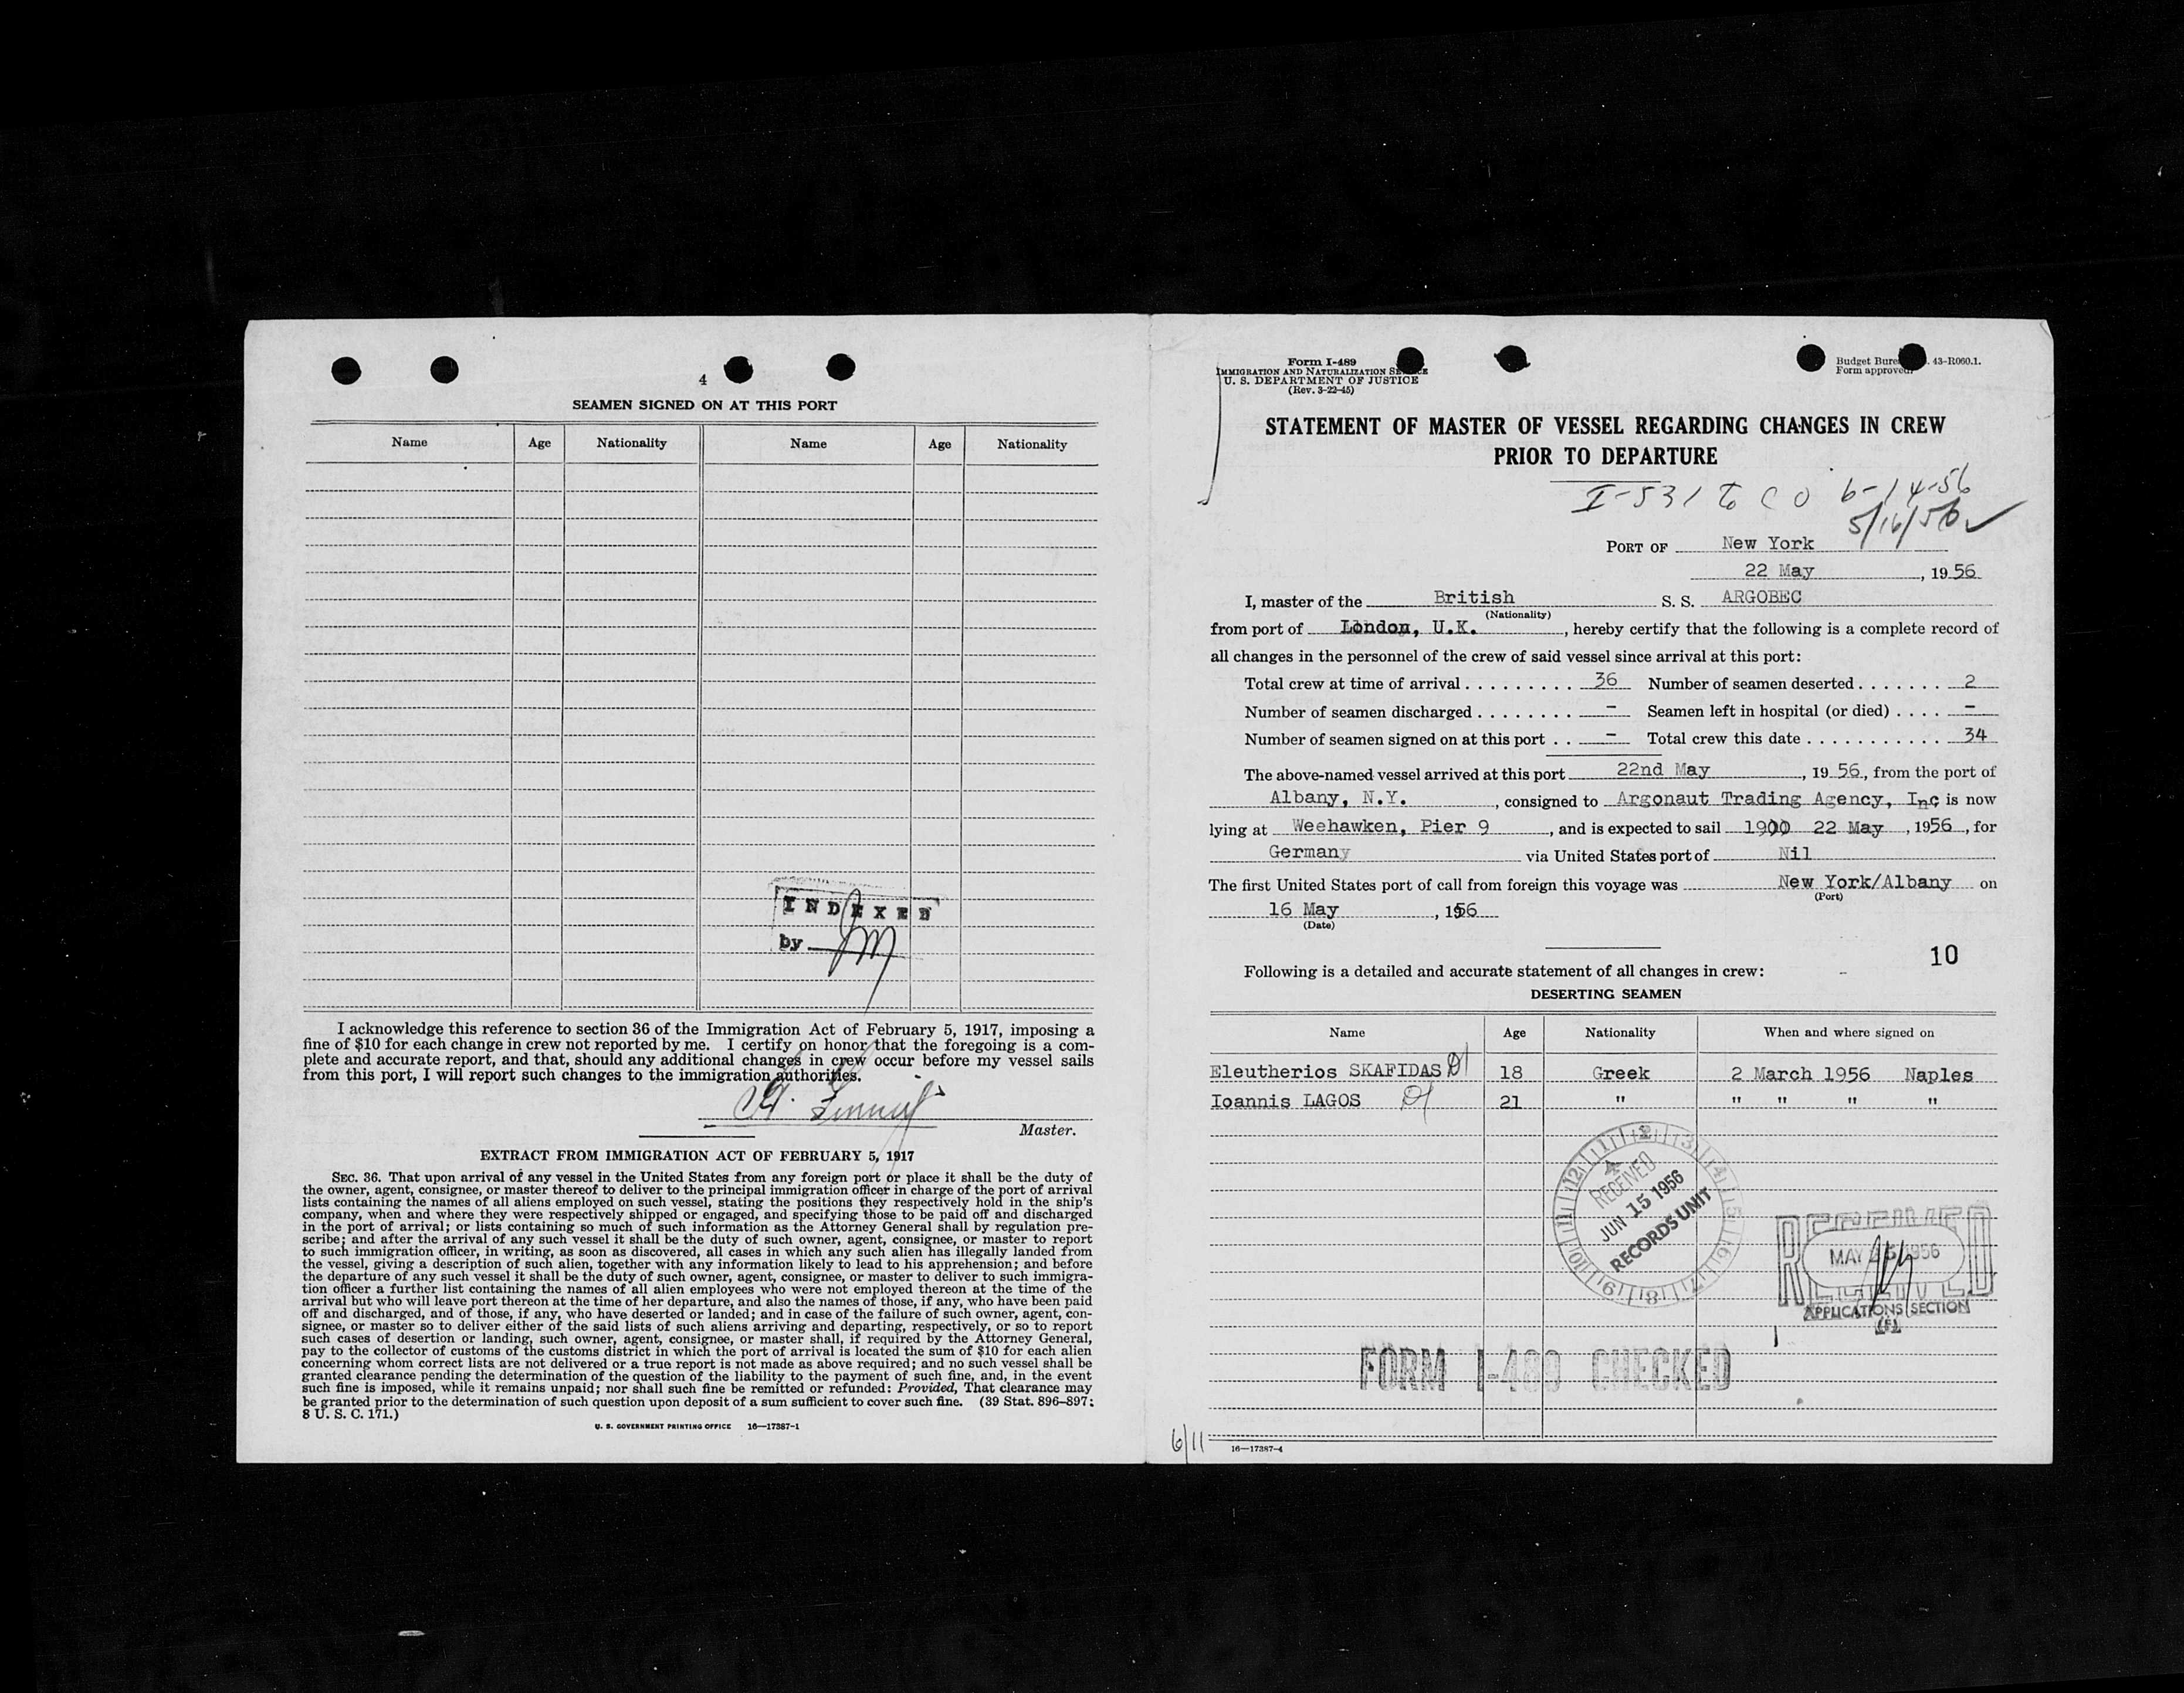 4
SEAMEN SIGNED ON AT THIS PORT
Name Age Nationality Name Age Nationality
INDEXED
by
I acknowledge this reference to section 36 of the Immigration Act of February 5, 1917, imposing a
fine of $10 for each change in crew not reported by me. I certify on honor that the foregoing is a com-
plete and accurate report, and that, should any additional changes in crew occur before my vessel sails
from this port, I will report such changes to the immigration authorities.
Master.
EXTRACT FROM IMMIGRATION ACT OF FEBRUARY 5, 1917
SEC. 36. That upon arrival of any vessel in the United States from any foreign port or place it shall be the duty of
the owner, agent, consignee, or master thereof to deliver to the principal immigration officer in charge of the port of arrival
lists containing the names of all aliens employed on such vessel, stating the positions they respectively hold in the ship's
company, when and where they were respectively shipped or engaged, and specifying those to be paid off and discharged
in the port of arrival; or lists containing so much of such information as the Attorney General shall by regulation pre-
scribe; and after the arrival of any such vessel it shall be the duty of such owner, agent, consignee, or master to report
to such immigration officer, in writing, as soon as discovered, all cases in which any such alien has illegally landed from
the vessel, giving a description of such alien, together with any information likely to lead to his apprehension; and before
the departure of any such vessel it shall be the duty of such owner, agent, consignee, or master to deliver to such immigra-
tion officer a further list containing the names of all alien employees who were not employed thereon at the time of the
arrival but who will leave port thereon at the time of her departure, and also the names of those, if any, who have been paid
off and discharged, and of those, if any, who have deserted or landed; and in case of the failure of such owner, agent, con-
signee, or master so to deliver either of the said lists of such aliens arriving and departing, respectively, or so to report
such cases of desertion or landing, such owner, agent, consignee, or master shall, if required by the Attorney General,
pay to the collector of customs of the customs district in which the port of arrival is located the sum of $10 for each alien
concerning whom correct lists are not delivered or a true report is not made as above required; and no such vessel shall be
granted clearance pending the determination of the question of the liability to the payment of such fine, and, in the event
such fine is imposed, while it remains unpaid; nor shall such fine be remitted or refunded: Provided, That clearance may
be granted prior to the determination of such question upon deposit of a sum sufficient to cover such fine. (39 Stat. 896–897;
8 U. S. C. 171.)
U. S. GOVERNMENT PRINTING OFFICE 16—17387-1
Form I-489
IMMIGRATION AND NATURALIZATION
U. S. DEPARTMENT OF JUSTICE
(Rev. 3-22-45)
Budget 43-R060.1.
Form approved
STATEMENT OF MASTER OF VESSEL REGARDING CHANGES IN CREW
PRIOR TO DEPARTURE
I-531 to C O 6-14-56
5/16/56
PORT OF New York
22 May, 1956
I, master of the British S. S. ARGOBEC
(Nationality)
from port of London, U.K., hereby certify that the following is a complete record of
all changes in the personnel of the crew of said vessel since arrival at this port:
Total crew at time of arrival . . . . . . . . . . 36 Number of seamen deserted . . . . . . . 2
Number of seamen discharged . . . . . . . . - Seamen left in hospital (or died) . . . . -
Number of seamen signed on at this port . . - Total crew this date . . . . . . . . . . . 34
The above-named vessel arrived at this port 22nd May, 19 56, from the port of
Albany, N.Y., consigned to Argonaut Trading Agency, Inc is now
lying at Weehawken, Pier 9, and is expected to sail 1900 22 May, 1956, for
Germany via United States port of Nil
The first United States port of call from foreign this voyage was New York/Albany on
(Port)
16 May, 1956
(Date)
10
Following is a detailed and accurate statement of all changes in crew:
DESERTING SEAMEN
Name Age Nationality When and where signed on
Eleutherios SKAFIDAS 18 Greek 2 March 1956 Naples
Ioannis LAGOS 21 " " " " "
12 1 2 3 4 5 6 7 8 9 10 11
RECEIVED
JUN 15 1956
RECORDS UNIT
RECEIVED
MAY 1956
RECEIVED
APPLICATIONS SECTION
FORM I-489 CHECKED
6/11
16—17387-4